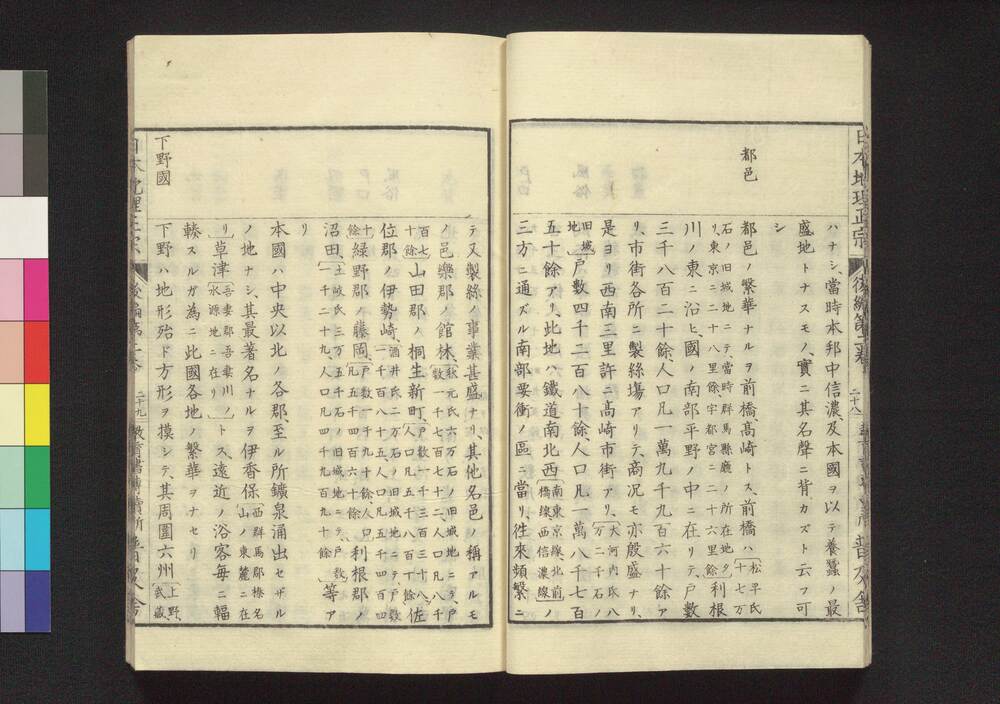 日本地理正宗
後編第二卷
二十八
普及舍
都邑
ハナシ、當時本邦中信濃、及本國ヲ以テ養蠶ノ最
盛地トナスモノ、實ニ其名聲ニ背カズト云フ可
シ
都邑ノ繁華ナルヲ前橋、高崎トス、前橋ハ松平氏十七万
石ノ旧城地ニテ、當時群馬縣廳ノ所在地タリ、東京ニ二十八里餘、宇都宮ニ二十六里餘利根
川ノ東ニ沿ヒ國ノ南部平野ノ中ニ在リテ、戸數
三千八百二十餘人口凡一萬九千九百六十餘ア
リ、市街各所ニ製絲塲アリテ、商况モ亦殷盛ナリ、
是ヨリ西南三里許ニ高崎市街アリ、大河内氏八万二千石ノ
旧城地戸數四千二百八十餘、人口凡一萬八千七百
五十餘アリ、此地ハ鐵道南北西南東京線北前橋線西信濃線ノ
三方ニ通ズル南部要衝ノ區ニ當リ、徃來頻繁ニ
テ又製絲ノ事業甚盛ナリ、其他名邑ノ稱アルモ
ノ邑樂郡ノ館林、秋元氏六万石ノ旧城地ニテ、戸數一千七百七十二、人口凡八千
百七十餘山田郡ノ桐生新町、戸數一千三百三十八、人口凡五千八百一丁餘佐
位郡ノ伊勢崎、酒井氏二万石ノ旧城地ニテ、戸數一千百八十五、人口凡五千四百四
十餘緑野郡ノ藤岡、戸數一千九十餘、人口凡五千四百六十餘利根郡ノ
沼田、土岐氏三万五千石ノ旧城地ニテ、戸數一千二十九、人口凡四千九百九十餘等ア
リ
本國ハ中央以北ノ各郡、至ル所鑛泉涌出セザル
ノ地ナシ、其最著名ナルヲ伊香保西群馬郡榛名山ノ東麓ニ在
リ草津吾妻郡吾妻川ノ水源地ニ在リトス、遠近ノ浴客每ニ輻
輳スルガ為ニ此國各地ノ繁華ヲナセリ
下野國
下野ハ地形殆ド方形ヲ摸シテ、其周圍六州上野、武藏、
後編第二卷
二十九